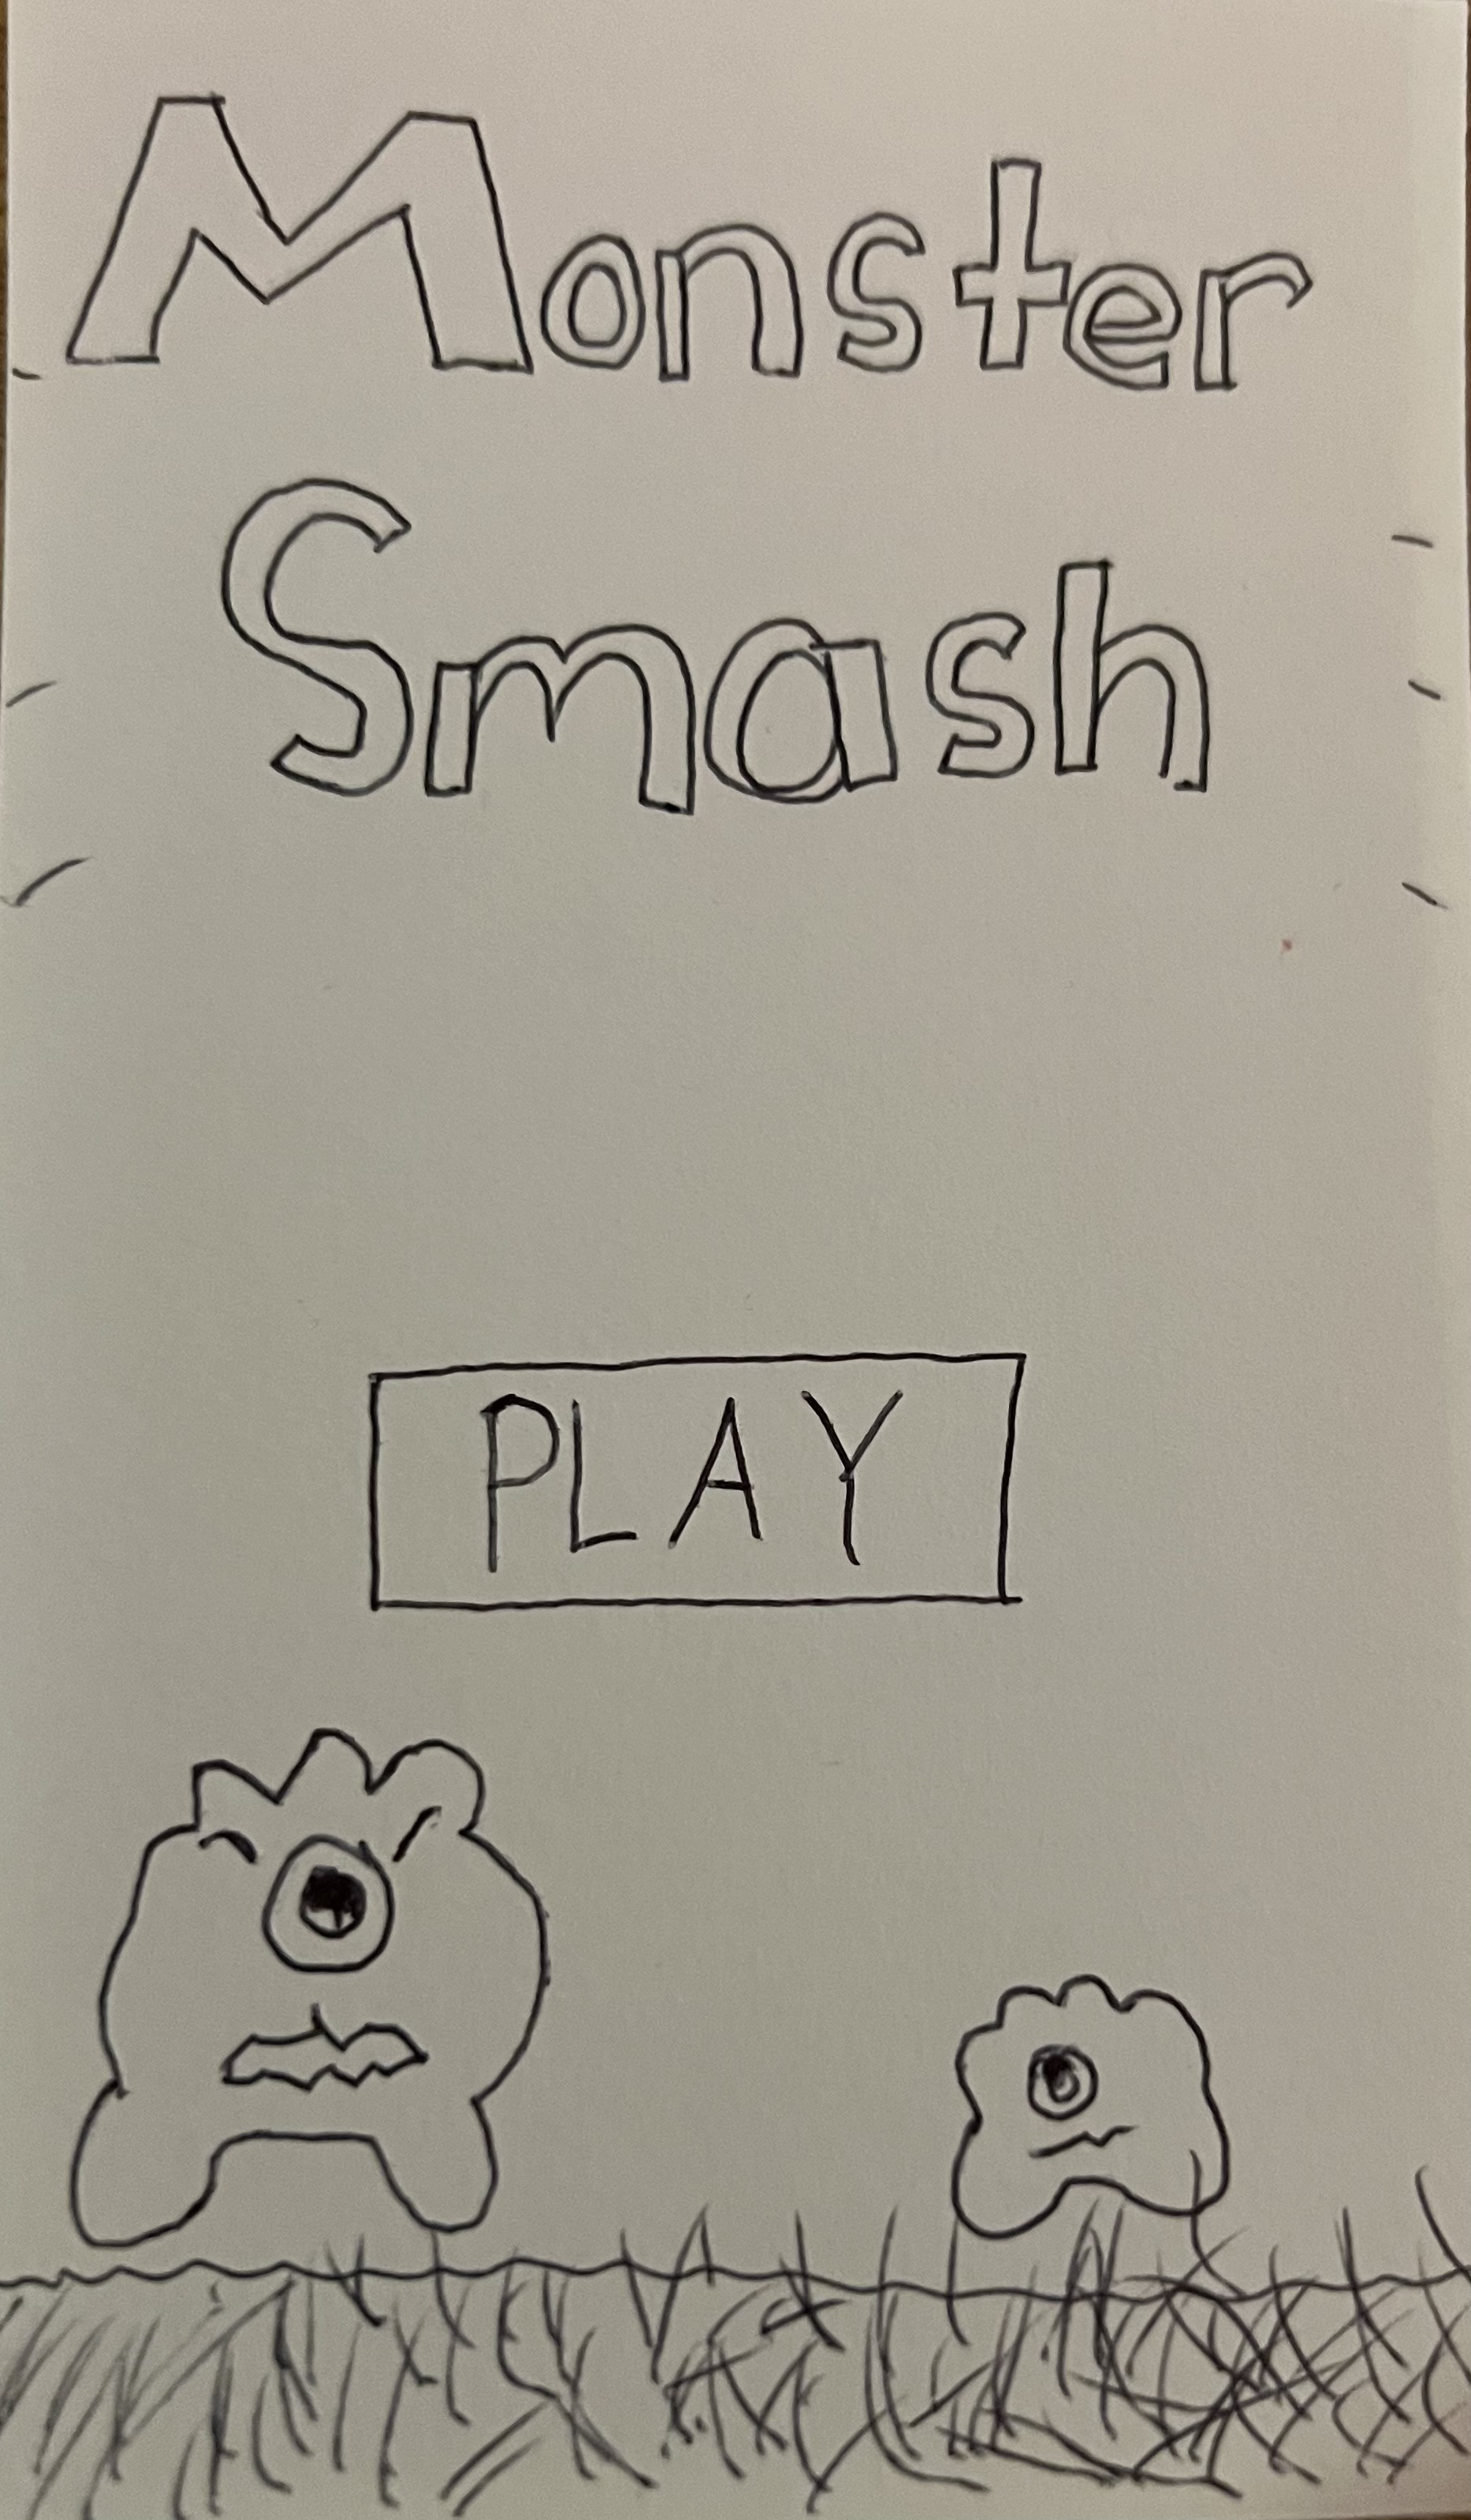 Monster
Smash
PLAY